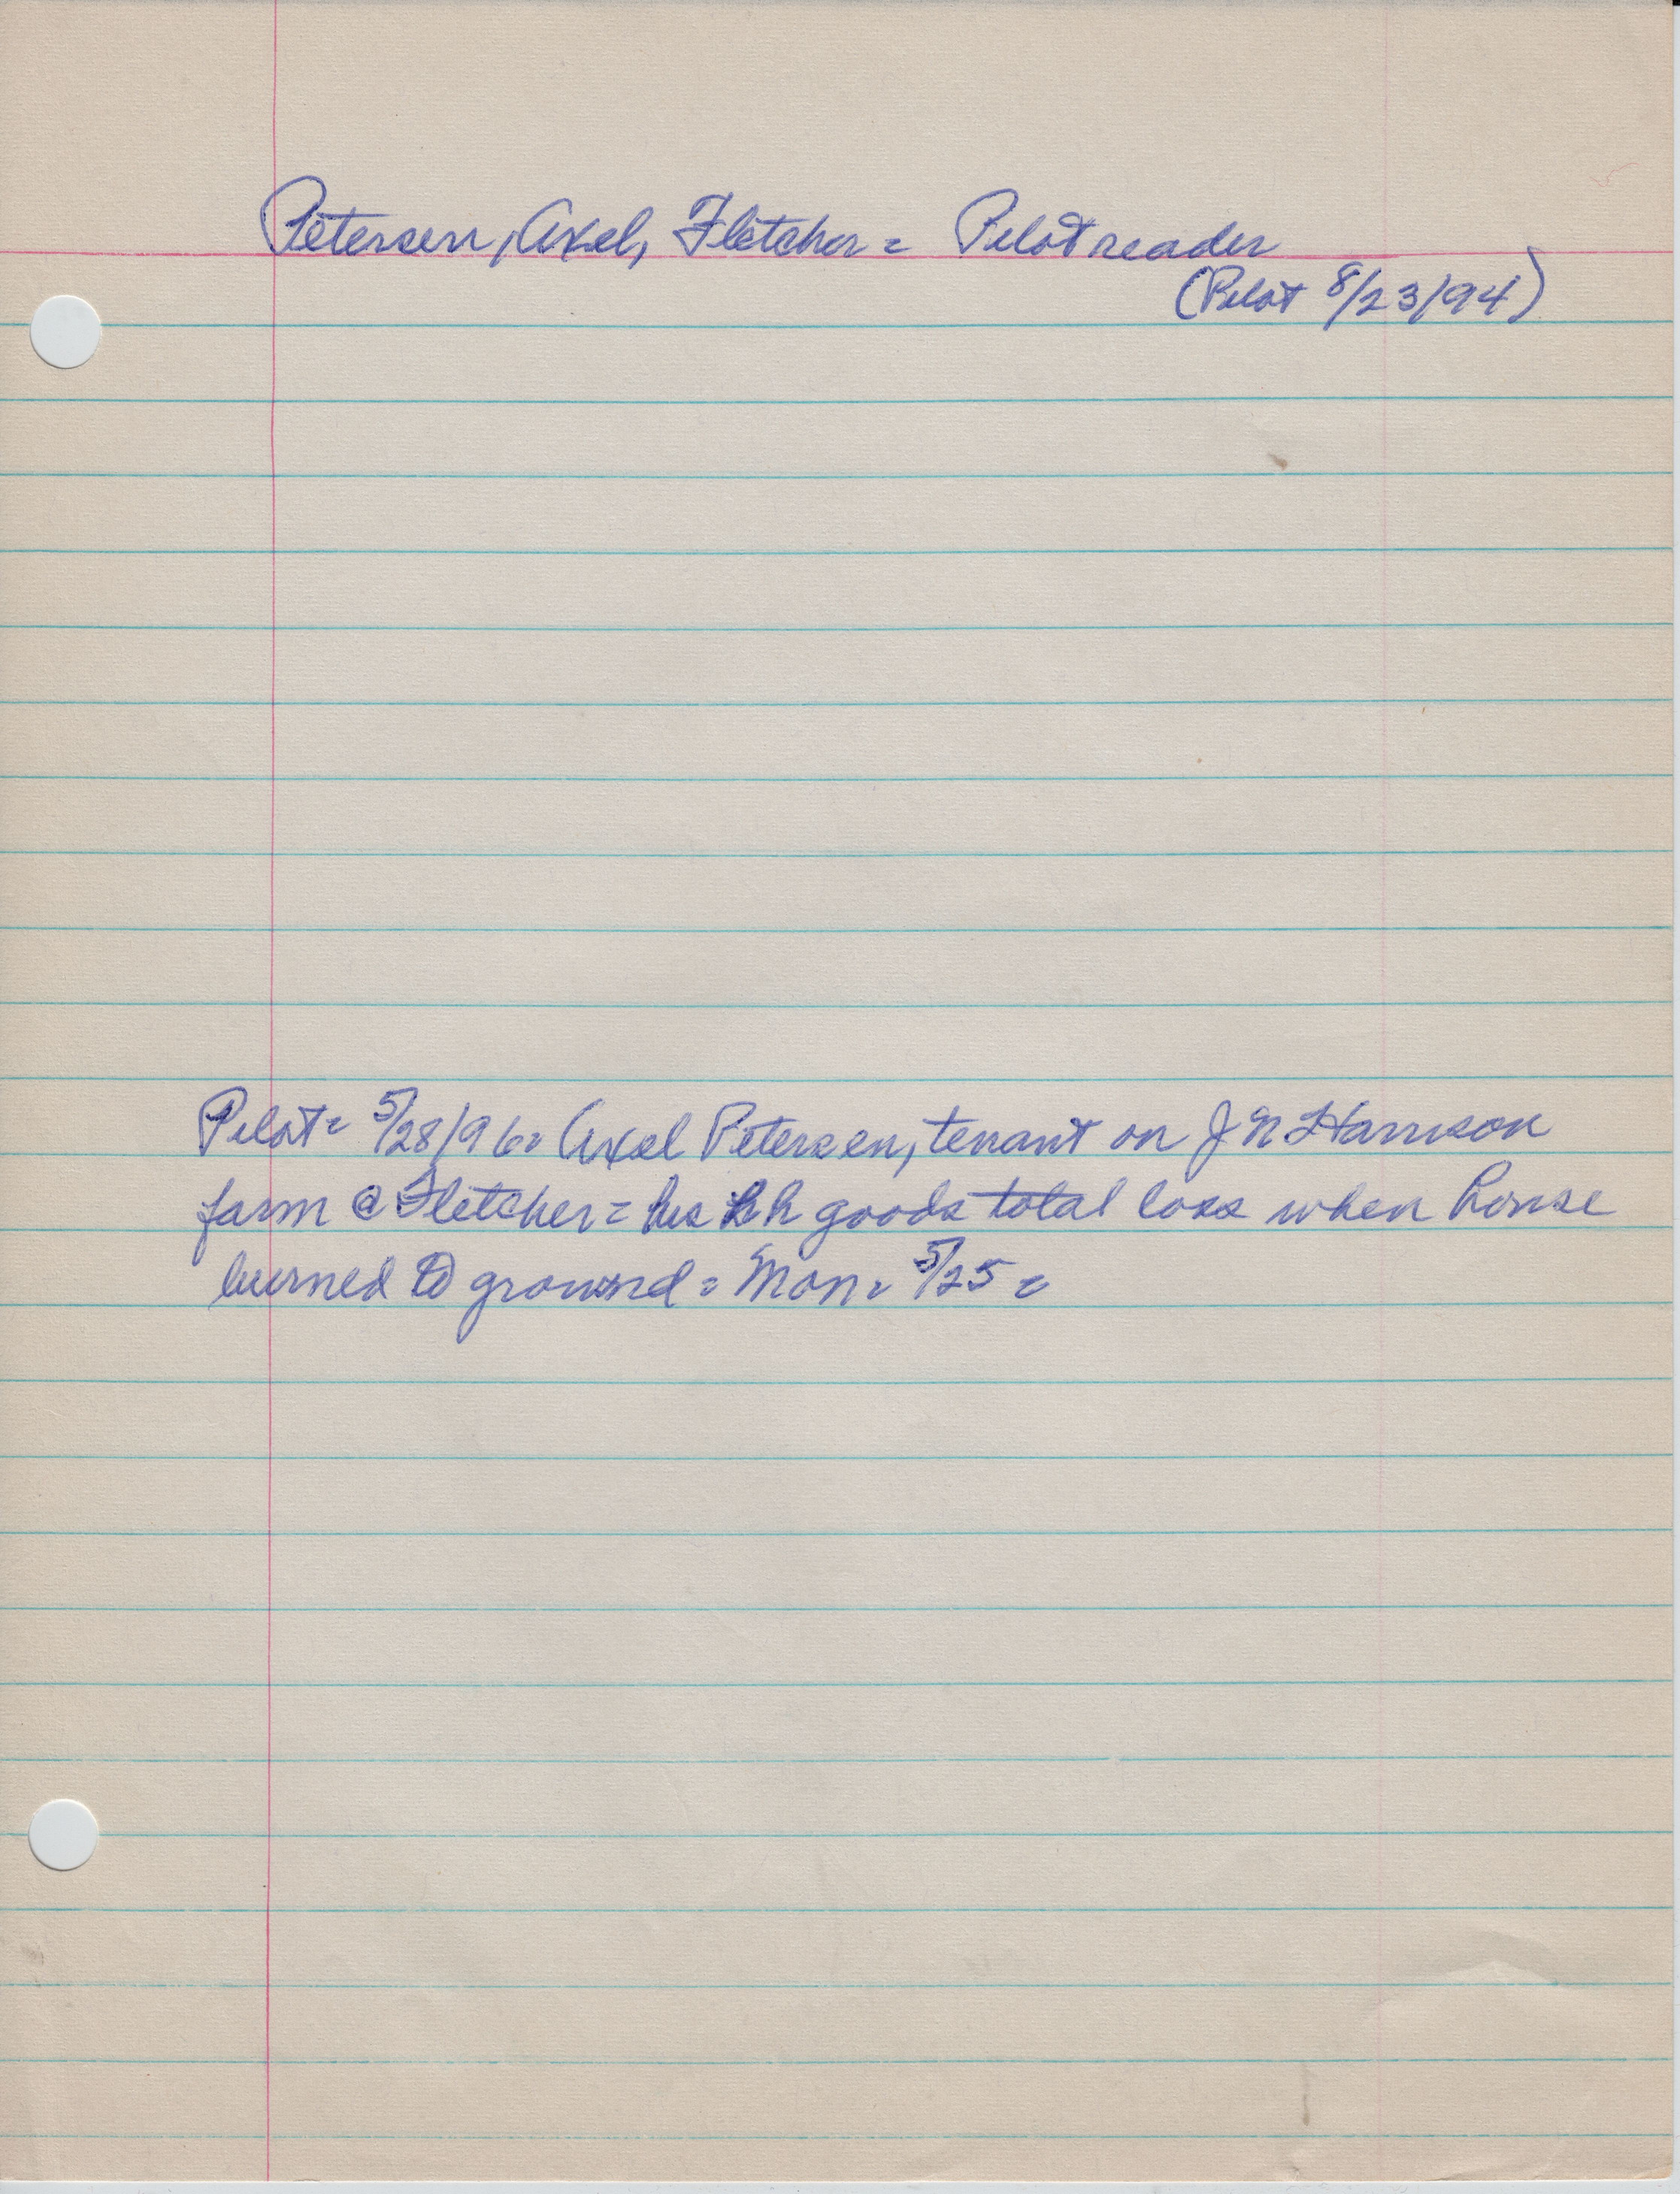 Petersen, Axel, Fletcher = Pilot reader
(Pilot 8/23/94)
Pilot = 5/28/96 = Axel Petersen, tenant on J N Harrison
farm @ Fletcher = his h h goods total loss when house
burned to ground = Mon = 5/25 =